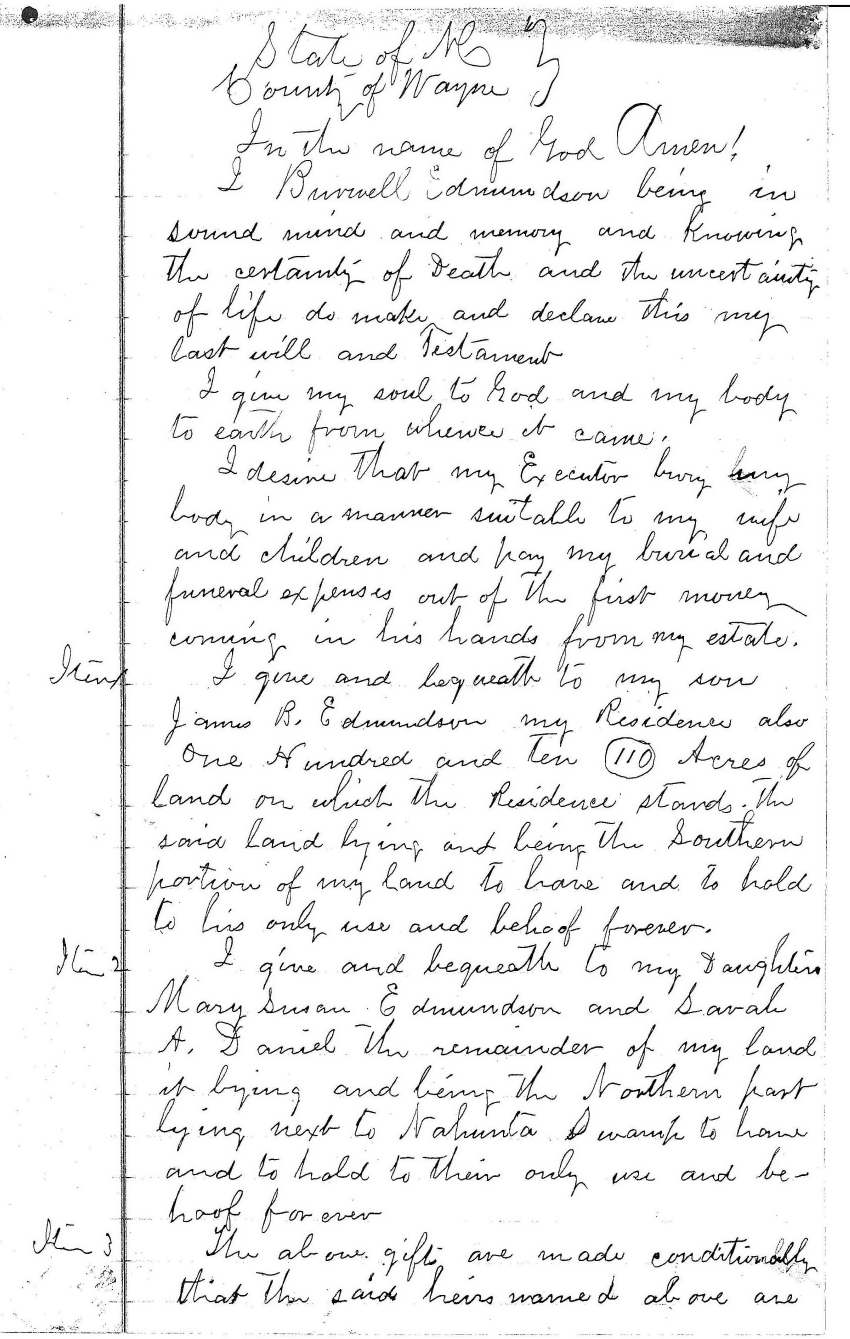 State of NC
County of Wayne
In the name of God Amen!
I Burwell Edmundson being in
sound mind and memory and knowing
the certainty of Death and the uncertainty
of life do make and declare this my
last will and Testament
I give my soul to God and my body
to earth from whence it came.
I desire that my Executor bury my
body in a manner suitable to my wife
and children and pay my burial and
funeral expenses out of the first money
coming in his hands from my estate.
Item 1 I give and bequeath to my son
James B. Edmundson my Residence also
One Hundred and Ten (110) Acres of
land on which the Residence stands. The
said land lying and being the Southern
portion of my land to have and to hold
to his only use and behoof forever.
Item 2 I give and bequeath to my Daughters
Mary Susan Edmundson and Sarah
A. Daniel the remainder of my land
it lying and being the Northern part
lying next to Nahunta Swamp to have
and to hold to their only use and be-
hoof forever
Item 3 The above gifts are made conditionally
that the said heirs named above are